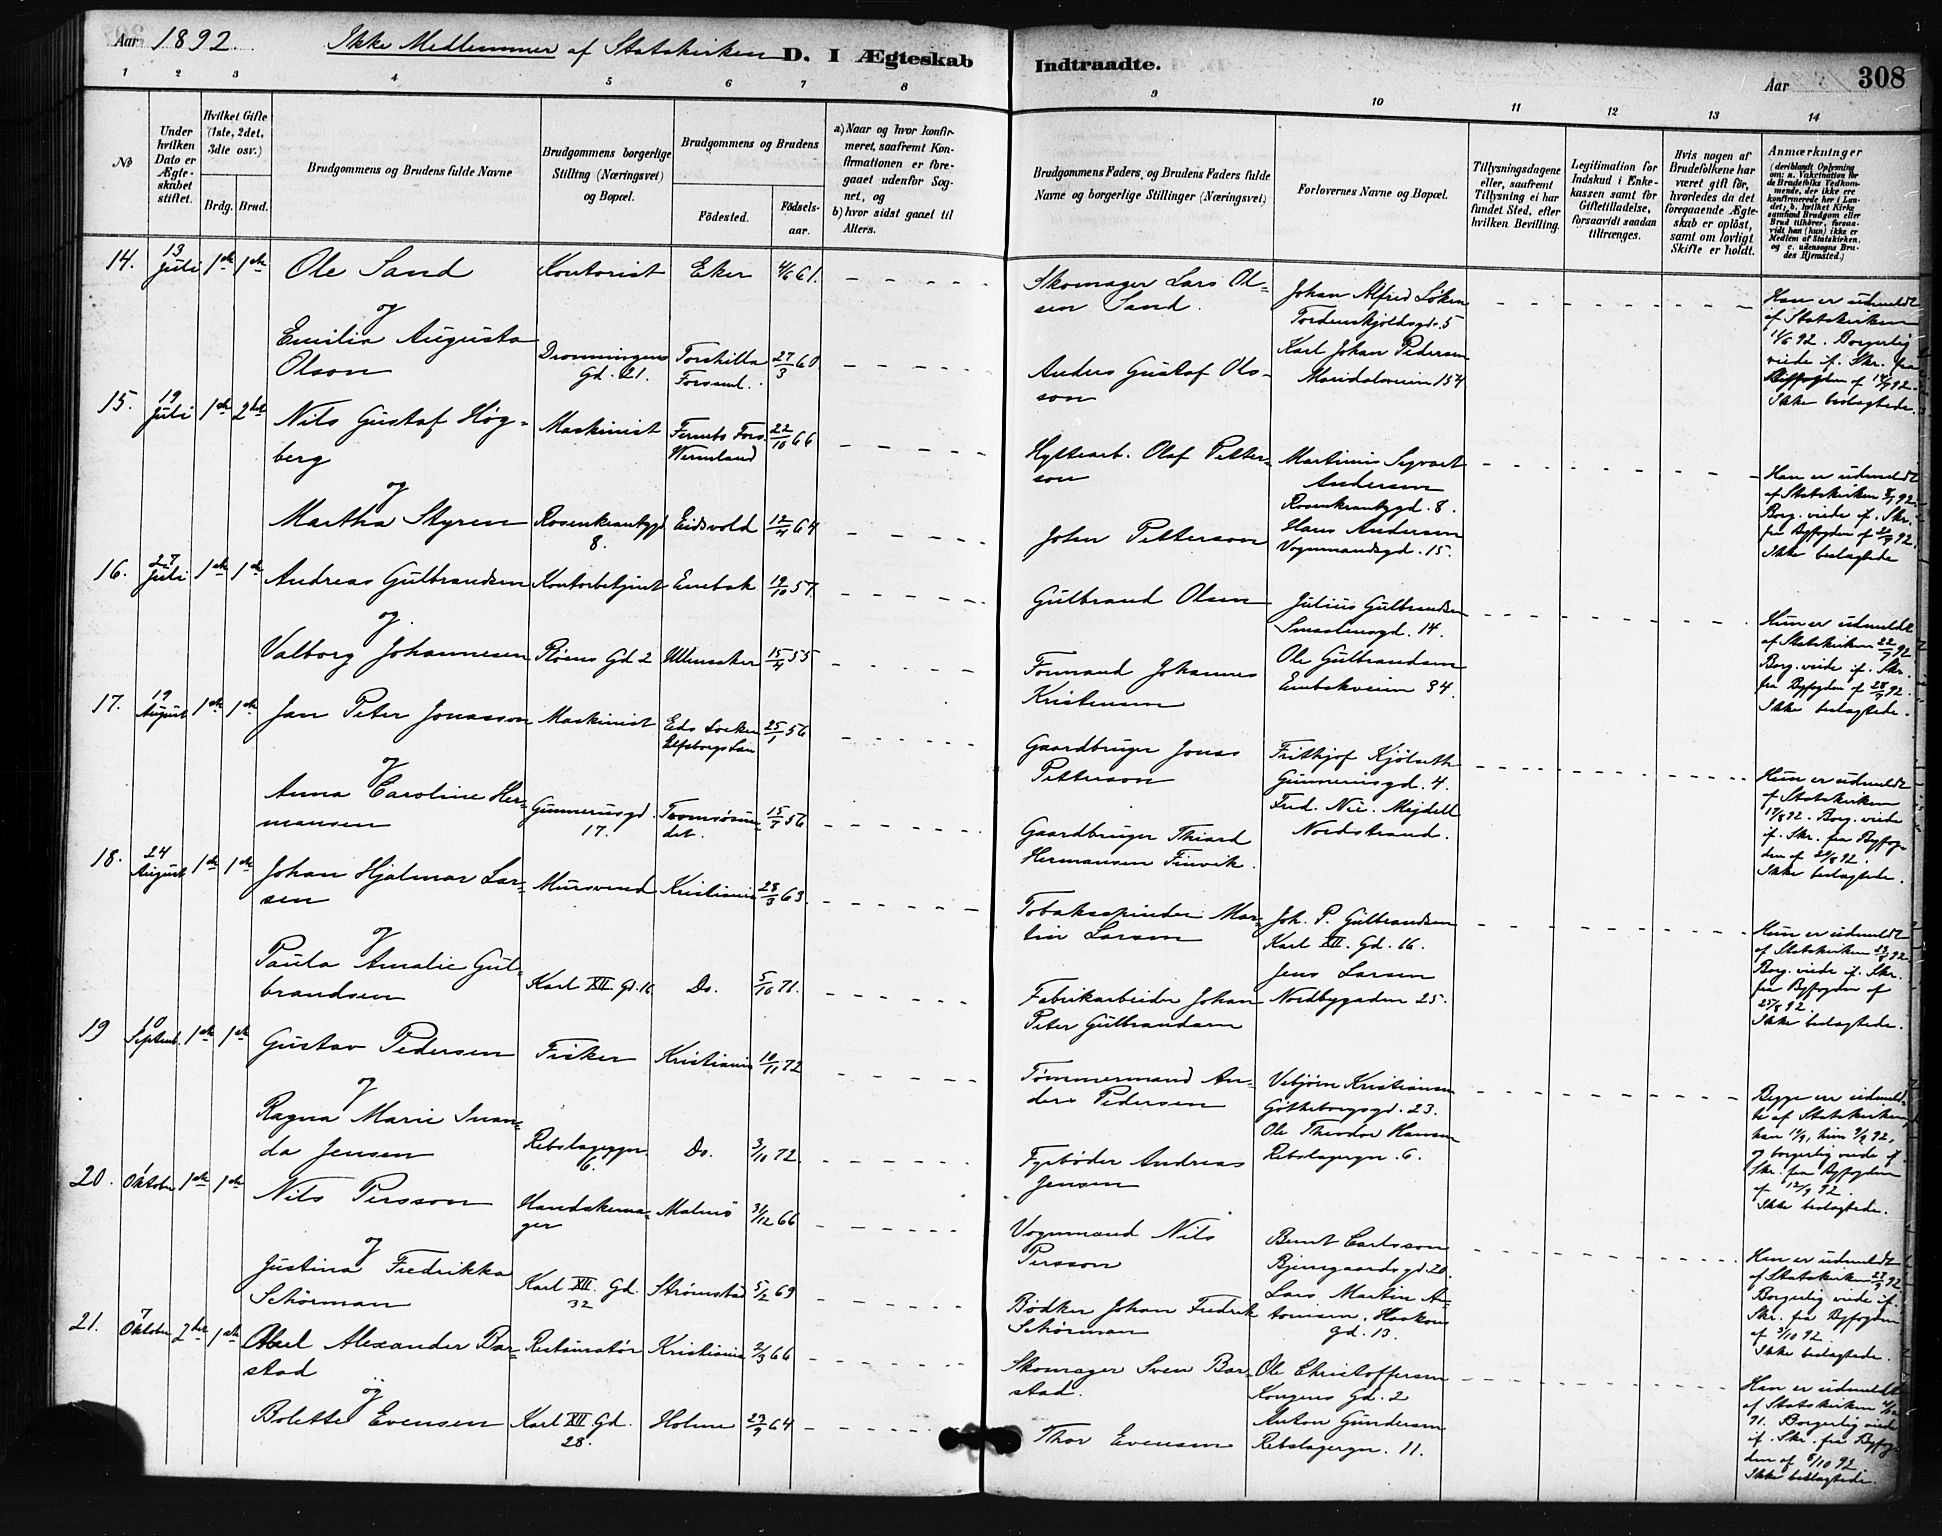 Aar 1892. Ikke Medlemmer af Statskirken D. I Ægteskab
Indtraadte. Aar 308
1 2 3 4 5 6 7 8
9 10 11 12 13 14
No
Under hvilken Dato er Ægteskabet stiftet.
Hvilket Gifte (1ste, 2det, 3die osv.)
Brdg. Brud.
Brudgommens og Brudens fulde Navne
Brudgommens borgerlige Stilling (Næringsvei) og Bopæl.
Brudgommens og Brudens
Fødested. Fødsels-aar.
a) Naar og hvor konfirmeret, saafremt Konfirmationen er foregaaet udenfor Sognet, og
b) hvor sidst gaaet til Alters.
Brudgommens Faders, og Brudens Faders fulde Navne og borgerlige Stillinger (Næringsvei)
Forlovernes Navne og Bopæl.
Tillysningsdagene eller, saafremt Tillysning ei har fundet Sted, efter hvilken Bevilling.
Legitimation for Indskud i Enkekassen samt for Giftetilladelse, forsaavidt saadan tiltrænges.
Hvis nogen af Brudefolkene har været gift før, hvorledes da det foregaaende Ægteskab er opløst, samt om lovligt Skifte er holdt.
Anmærkninger
(deriblandt Oplysning om: a. Vakcination for de Brudefolks Vedkommende, der ikke ere konfirmerede her i Landet; b. hvilket Kirkesamfund Brudgom eller Brud tilhører, forsaavidt han (hun) ikke er Medlem af Statskirken, og c. udensogns Brudes Hjemsted.)
14. 13 Juli 1ste 1ste Ole Sand Kontorist Eker 4/6 61.
Skomager Lars Olsen Sand.
Johan Alfred Løken Tordenskjoldsgd. 5
Han er udmeldt af Statskirken
og
Emilia Augusta Olson Dronningens Gd. 21. Torskilla Forsaml. 27/3 60
Anders Gustaf Olsson
Karl Johan Pedersen Maridalsveien 154
92. Borgerlig viede if. Skr. fra Byfogden af 92. Ikke beslagtede.
15. 19 Juli 1ste 2det Nils Gustaf Høgberg Maskinist Wermland 22/10 66
Hyttearb. Olaf Petterson
Martinus Sigvart Andersen Rosenkrantzgd. 8.
Han er udmeldt af Statskirken 92
og
Martha Styren Rosenkrantzgd 8. Eidsvold 12/4 64
John Petterson
Hans Andersen Vognmandsgd. 15.
Borg. viede if. Skr. fra Byfogden af 92. Ikke beslagtede
16. 27 Juli 1ste 1ste Andreas Gulbrandsen Kontorbetjent Enebak 19/10 57
Gulbrand Olsen
Julius Gulbrandsen Smaalensgd. 14.
Hun er udmeldt af Statskirken 22/7 92
og
Valborg Johannesen Pløens Gd 2 Ullensaker 15/4 55
Formand Johannes Kristensen
Ole Gulbrandsen Enebakveien 34.
Borg. viede if. Skr. fra Byfogden af 28/7 92. Ikke beslagtede.
17. 19 August 1ste 1ste Jan Peter Jonasson Maskinist Eds Socken Elfsborgs Län 25/1 56
Gaardbruger Jonas Petterson
Frithjof Kjølseth Gunnerusgd. 4.
Hun er udmeldt af Statskirken
og
Anna Caroline Hermansen Gunnerusgd 17. Tromsøsundet. 15/7 56
Gaardbruger Thiard Hermansen Finvik.
Fred. Nic. Mejdell Nordstrand.
17/8 92. Borg. viede if. Skr. fra Byfogden af 92. Ikke beslagtede.
18. 24 August 1ste 1ste Johan Hjalmar Larsen Mursvend Kristiania 28/9 63.
Tobaksspinder Martin Larsen
Joh. P. Gulbrandsen Karl XII. Gd. 16.
Hun er udmeldt af Statskirken 92
og
Paula Amalie Gulbrandsen Karl XII. Gd. 16 Do. 5/10 71.
Fabrikarbeider Johan Peter Gulbrandsen
Jens Larsen Nordbygaden 25.
Borg. viede if. Skr. fra Byfogden af 25/8 92. Ikke beslagtede.
19 10 Septemb. 1ste 1ste Gustav Pedersen Fisker Kristiania 10/11 72
Tømmermand Anders Pedersen
Vebjørn Kristiansen Götheborgsgd. 23.
Begge er udmeldte af Statskirken
og
Ragna Marie Inanda Jensen Rebslagergn. 6. Do. 3/10 72.
Fyrbøder Andreas Jensen
Ole Theodor Hansen Rebslagergn. 6.
han hun 92, og borgerlig viede if. Skr. fra Byfogden af 12/9 92. Ikke beslagtede.
20. Oktober 1ste 1ste Nils Persson Handskemager Malmö 31/12 66
Vognmand Nils Persson
Bernt Carlsson Bjerregaardsgd. 20.
Han er udmeldt af Statskirken 92
og
Justina Fredrikka Schörman Karl XII. Gd. 32 Strømstad 5/2 69
Bødker Johan Fredrik Schörman
Lars Martin Antonisen. Haakons gd. 13.
Borgerlig viede if. Skr. fra Byfogden af 3/10 92. Ikke beslagtede.
21. 7 Oktober 2det 1ste Axel Alexander Barstad Restauratør Kristiania 2/3 66
Skomager Sven Barstad.
Ole Christoffersen Kongens Gd. 2
Han er udmeldt af Statskirken
og
Bolette Evensen Karl XII. Gd. 28. Holme 29/9 64
Thor Evensen
Anton Gundersen Rebslagergn. 11.
91. Borgerlig viede if. Skr. fra Byfogden af 6/10 92. Ikke beslagtede.